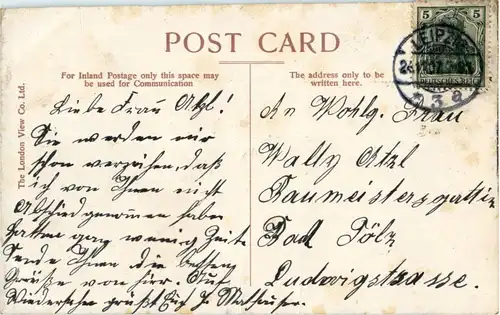 POST CARD
For Inland Postage only this space may
be used for Communication
The address only to be
written here.
The London View Co. Ltd.
5 5
DEUTSCHES REICH
LEIPZIG
3 a
Liebe Frau Atzl!
Sie werden mir
schon verzeihen, daß
ich von Ihnen nicht
Abschied genommen habe
hatte gar wenig Zeit
Sende Ihnen die besten
Grüße von hier. Auf
Wiedersehen grüßt
An Wohlg. Frau
Wally Atzl
Baumeistersgattin
Bad Tölz
Ludwigstrasse.